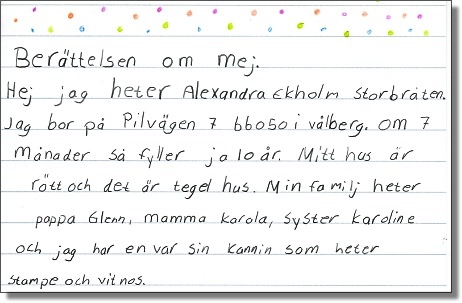 Berättelsen om mej.
Hej jag heter Alexandra Ekholm Storbråten.
Jag bor på Pilvägen 7 66050 i vålberg. om 7
månader så fyller ja 10 år. Mitt hus är
rött och det är tegel hus. Min familj heter
pappa Glenn, mamma karola, syster karoline
och jag har en var sin kannin som heter
stampe och vitnos.